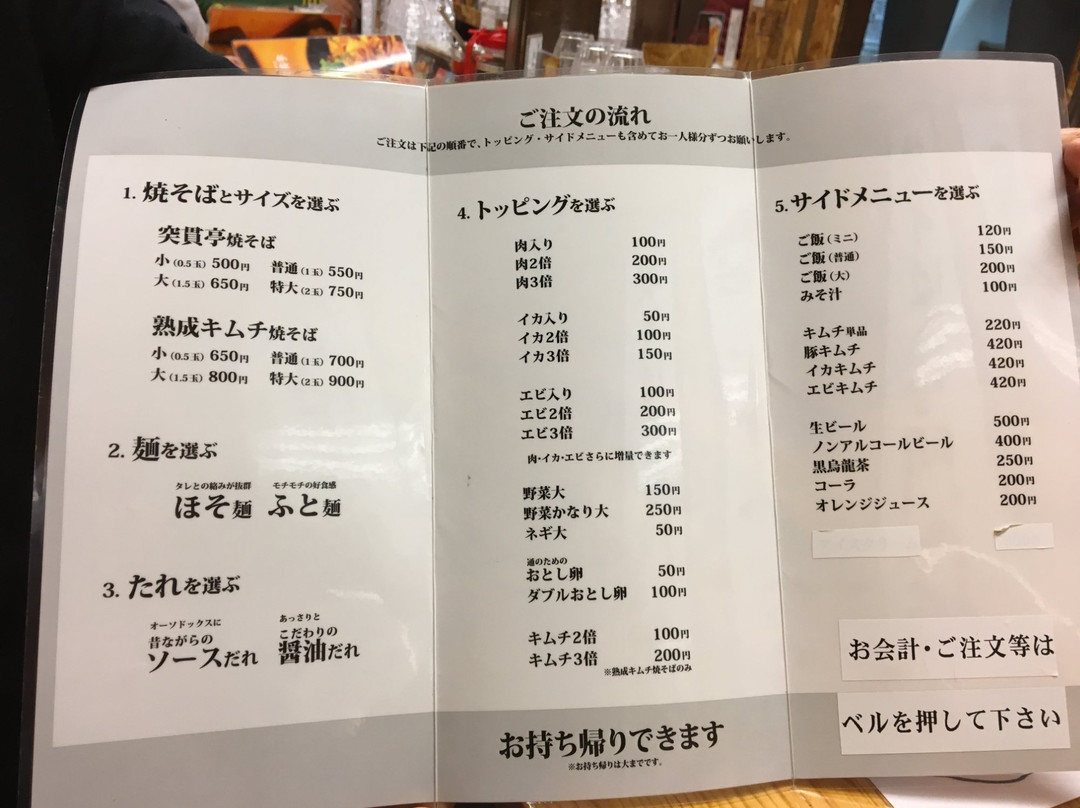 ご注文の流れ
ご注文は下記の順番で、トッピング・サイドメニューも含めてお一人様分ずつお願いします。
1. 焼そばとサイズを選ぶ
突貫亭焼そば
小(0.5玉) 500円 普通(1玉) 550円
大(1.5玉) 650円 特大(2玉) 750円
熟成キムチ焼そば
小(0.5玉) 650円 普通(1玉) 700円
大(1.5玉) 800円 特大(2玉) 900円
2. 麺を選ぶ
タレとの絡みが抜群 モチモチの好食感
ほそ麺 ふと麺
3. たれを選ぶ
オーソドックスに あっさりと
昔ながらの こだわりの
ソースだれ 醤油だれ
4. トッピングを選ぶ
肉入り 100円
肉2倍 200円
肉3倍 300円
イカ入り 50円
イカ2倍 100円
イカ3倍 150円
エビ入り 100円
エビ2倍 200円
エビ3倍 300円
肉・イカ・エビさらに増量できます
野菜大 150円
野菜かなり大 250円
ネギ大 50円
通のための
おとし卵 50円
ダブルおとし卵 100円
キムチ2倍 100円
キムチ3倍 200円
※熟成キムチ焼そばのみ
お持ち帰りできます
※お持ち帰りは大までです。
5. サイドメニューを選ぶ
ご飯(ミニ) 120円
ご飯(普通) 150円
ご飯(大) 200円
みそ汁 100円
キムチ単品 220円
豚キムチ 420円
イカキムチ 420円
エビキムチ 420円
生ビール 500円
ノンアルコールビール 400円
黒烏龍茶 250円
コーラ 200円
オレンジジュース 200円
お会計・ご注文等は
ベルを押して下さい